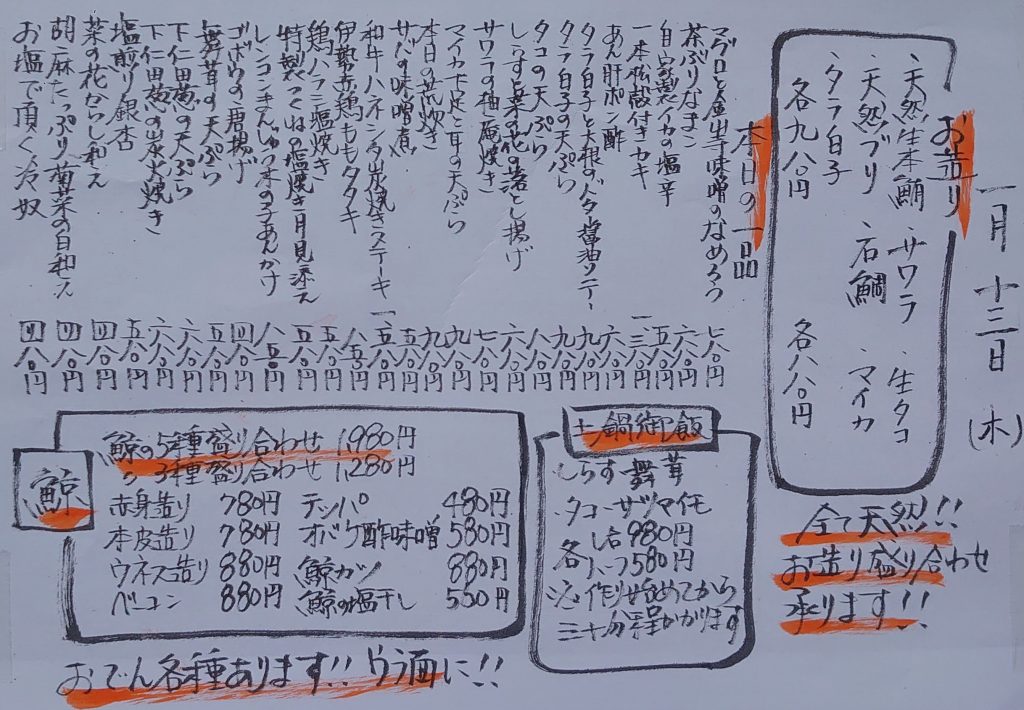 一月十三日(木)
お造り
・天然生本鮪 ・サワラ ・生タコ
・天然ブリ ・石鯛 ・マイカ
・タラ白子
各九八〇円 各八八〇円
全て天然!!
お造り盛り合わせ
承ります!!
本日の一品
マグロと金山寺味噌のなめろう 七八〇円
茶ぶりなまこ 六八〇円
自家製イカの塩辛 五八〇円
一本松殻付きカキ 一、三八〇円
あん肝ポン酢 六八〇円
タラ白子と大根のバター醤油ソテー 九八〇円
タラ白子の天ぷら 九八〇円
タコの天ぷら 八八〇円
しらすと菜の花の落とし揚げ 六八〇円
サワラの柚庵焼き 七八〇円
マイカ下足と耳の天ぷら 九八〇円
本日の荒炊き 九八〇円
サバの味噌煮 五八〇円
和牛ハネシタ炭焼きステーキ 一、五八〇円
伊勢赤鶏ももタタキ 八五〇円
鶏ハラミ塩焼き 五八〇円
特製つくねの塩焼き 月見添え 五五〇円
レンコンまんじゅう木の子あんかけ 八五〇円
ゴボウの唐揚げ 四八〇円
舞茸の天ぷら 五八〇円
下仁田葱の天ぷら 六八〇円
下仁田葱の炭火焼き 六八〇円
塩煎り銀杏 五八〇円
菜の花からし和え 四八〇円
胡麻たっぷり春菊の白和え 四八〇円
お塩で頂く冷奴 四八〇円
土鍋御飯
しらす舞茸
タコ・サツマイモ
各 980円
580円
※作り始めてから
三十分程かかります
鯨
鯨の5種盛り合わせ 1,980円
〃 3種盛り合わせ 1,280円
赤身造り 780円 テッパ 480円
本皮造り 780円 オバケ酢味噌 580円
ウネス造り 880円 鯨カツ 880円
ベーコン 880円 鯨の塩干し 550円
おでん各種あります!! ウラ面に!!